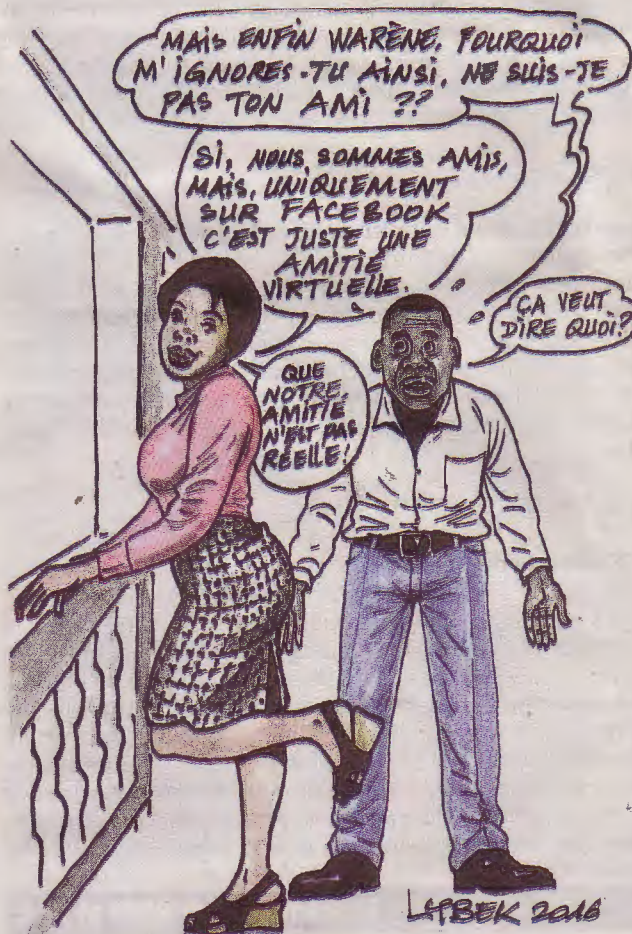 MAIS ENFIN WARÈNE, POURQUOI
M'IGNORES-TU AINSI, NE SUIS-JE
PAS TON AMI ??
SI, NOUS SOMMES AMIS,
MAIS, UNIQUEMENT
SUR FACEBOOK
C'EST JUSTE UNE
AMITIÉ
VIRTUELLE.
ÇA VEUT
DIRE QUOI?
QUE
NOTRE
AMITIÉ
N'EST PAS
RÉELLE!
LYBEK 2016